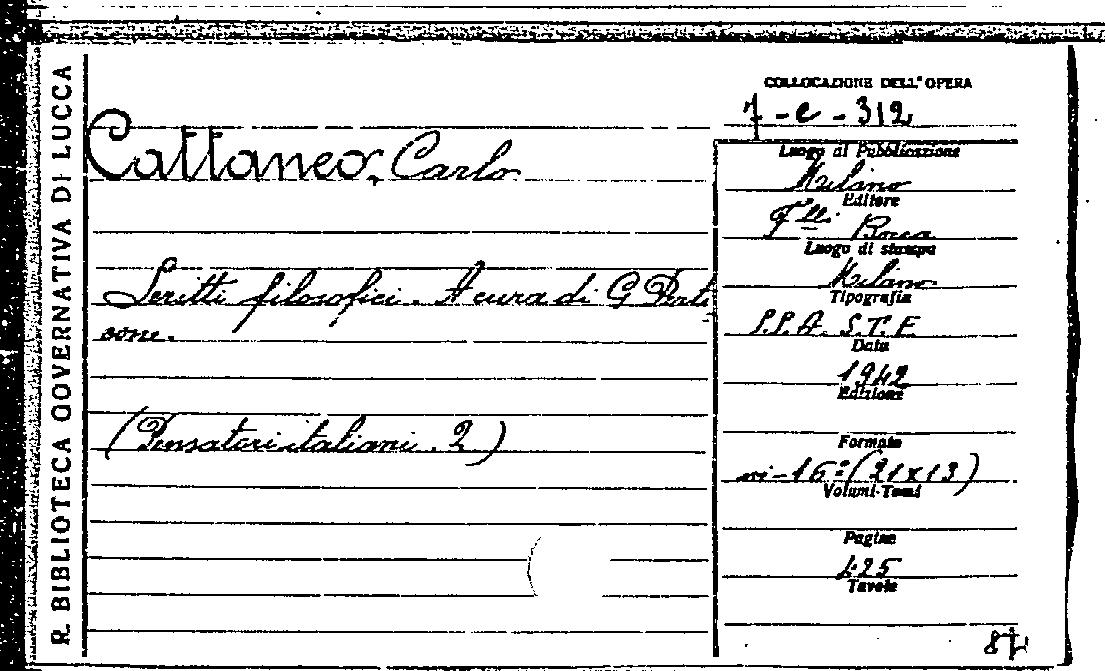 R. BIBLIOTECA GOVERNATIVA DI LUCCA
Cattaneo, Carlo
Scritti filosofici. A cura di G Perti
sone.
(Pensatori italiani. 2)
COLLOCAZIONE DELL'OPERA
7 - e - 312
Luogo di Pubblicazione
Milano
Editore
F.lli Bocca
Luogo di stampa
Milano
Tipografia
S.P.A. S.T.E.
Data
1942
Edizione
Formato
in-16° (21x13)
Volumi-Tomi
Pagine
425
Tavole